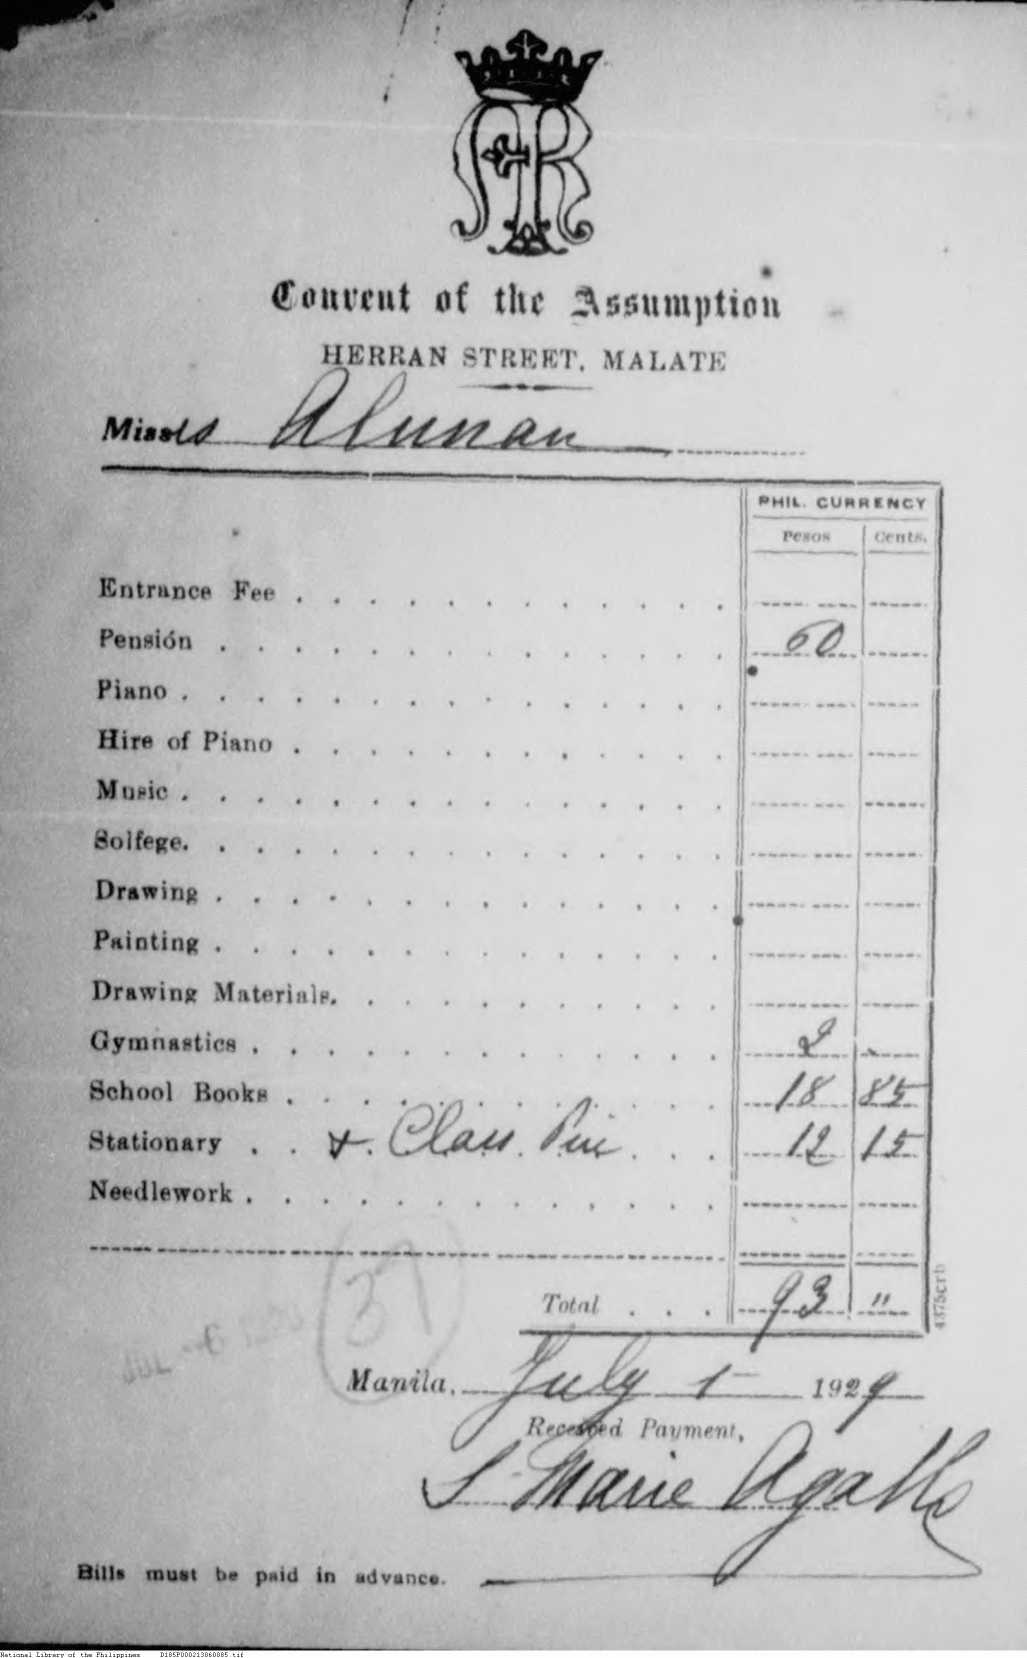 AR
Convent of the Assumption
HERRAN STREET, MALATE
Misses Alunan
PHIL. CURRENCY
Pesos Cents.
Entrance Fee . . . . . . . . . . . .
Pensión . . . . . . . . . . . . . . 60
Piano . . . . . . . . . . . . . . .
Hire of Piano . . . . . . . . . . . .
Music . . . . . . . . . . . . . . .
Solfege. . . . . . . . . . . . . . .
Drawing . . . . . . . . . . . . . .
Painting . . . . . . . . . . . . . .
Drawing Materials. . . . . . . . . . .
Gymnastics . . . . . . . . . . . . . 2 -
School Books . . . . . . . . . . . . 18 85
Stationary . . & Class Pin . . . 12 15
Needlework . . . . . . . . . . . . .
Total . . . 93 "
4375crb
(37)
JUL -6
Manila, July 1- 1929
Received Payment,
S. Marie Agathe
Bills must be paid in advance.
National Library of the Philippines D185P000213060085.tif